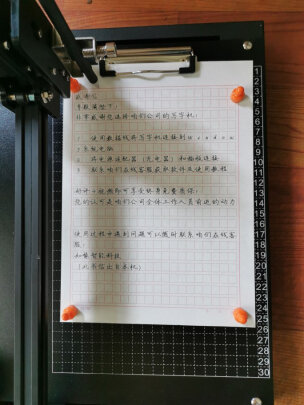 感谢信
尊敬的陛下:
非常感谢您选择咱们公司的写字机:
1 使用数据线将写字机连接到window
s系统电脑
2 将电源适配器(充电器)和插板连接
3 联系咱们在线客服获取软件及使用教程
好评+视频即可享受终身免费售后:
您的认可是咱们公司全体工作人员前进的动力
使用过程中遇到问题可以随时联系咱们在线客
服:
智能科技
(此书信出自本机)
1
2
3
4
5
6
7
8
9
10
11
12
13
14
15
16
17
18
19
20
21
22
23
24
25
26
27
28
29
30